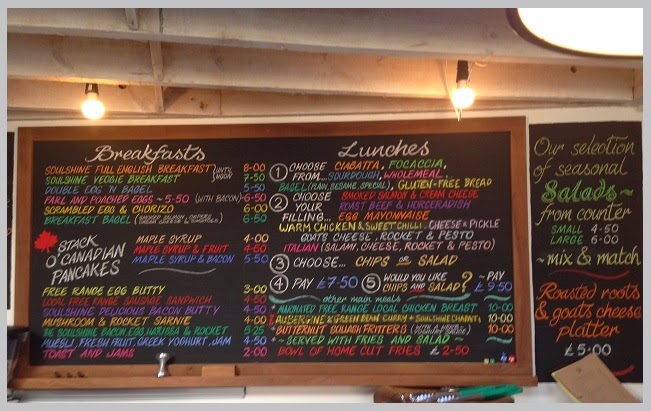 Breakfasts
SOULSHINE FULL ENGLISH BREAKFAST 8-00
SOULSHINE VEGGIE BREAKFAST 7-50
UNTIL NOON
DOUBLE EGG 'N BAGEL 5-50
EARL AND POACHED EGGS ~ 5-50 (WITH BACON) 6-50
SCRAMBLED EGG & CHORIZO 6-00
BREAKFAST BAGEL 6-50
STACK O'CANADIAN PANCAKES
MAPLE SYRUP 4-00
MAPLE SYRUP & FRUIT 4-50
MAPLE SYRUP & BACON 5-50
FREE RANGE EGG BUTTY 3-00
LOCAL FREE RANGE SAUSAGE SANDWICH 4-50
SOULSHINE DELICIOUS BACON BUTTY 4-50
MUSHROOM & ROCKET SARNIE 4-00
THE SOULSHINE BACON, EGG HARISSA & ROCKET 5-25
MUESLI, FRESH FRUIT, GREEK YOGHURT, JAM 4-50
TOAST AND JAMS 2-00
Lunches
1 CHOOSE FROM... CIABATTA, FOCACCIA,
SOURDOUGH, WHOLEMEAL...
BAGEL (PLAIN, SESAME, SPECIAL), GLUTEN-FREE BREAD
2 CHOOSE YOUR FILLING... SMOKED SALMON & CREAM CHEESE
ROAST BEEF & HORSERADISH
EGG MAYONNAISE
WARM CHICKEN & SWEET CHILLI. CHEESE & PICKLE
GOATS CHEESE, ROCKET & PESTO
ITALIAN (SALAMI, CHEESE, ROCKET & PESTO)
3 CHOOSE... CHIPS OR SALAD
4 PAY £7-50
5 WOULD YOU LIKE CHIPS AND SALAD? ~ PAY £9-50
other main meals
MARINATED FREE RANGE LOCAL CHICKEN BREAST 10-00
AUBERGINE & GREEN BEAN CURRY & SOULSHINE CHAPATI 10-00
BUTTERNUT SQUASH FRITTERS 10-00
~ SERVED WITH FRIES AND SALAD ~
BOWL OF HOME CUT FRIES £2-50
Our selection
of seasonal
Salads ~
from counter
SMALL 4-50
LARGE 6-00
~ mix & match
Roasted roots
& goats cheese
platter
£5-00